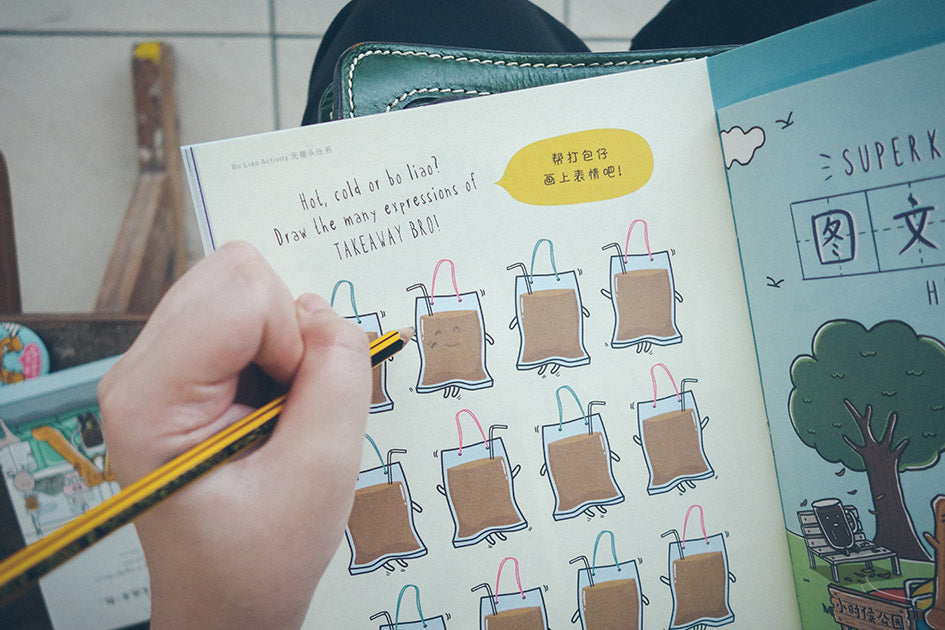 Bo Liao Activity 无聊头任务
Hot, cold or bo liao?
Draw the many expressions of
TAKEAWAY BRO!
帮打包仔
画上表情吧!
SUPERK
图文
H
小时候公园